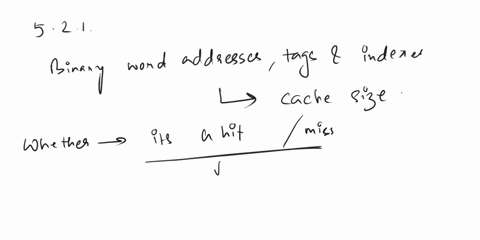 5.2.1.
Binary word addresses, tags & indexes
↳ cache size.
Whether → its a hit / miss